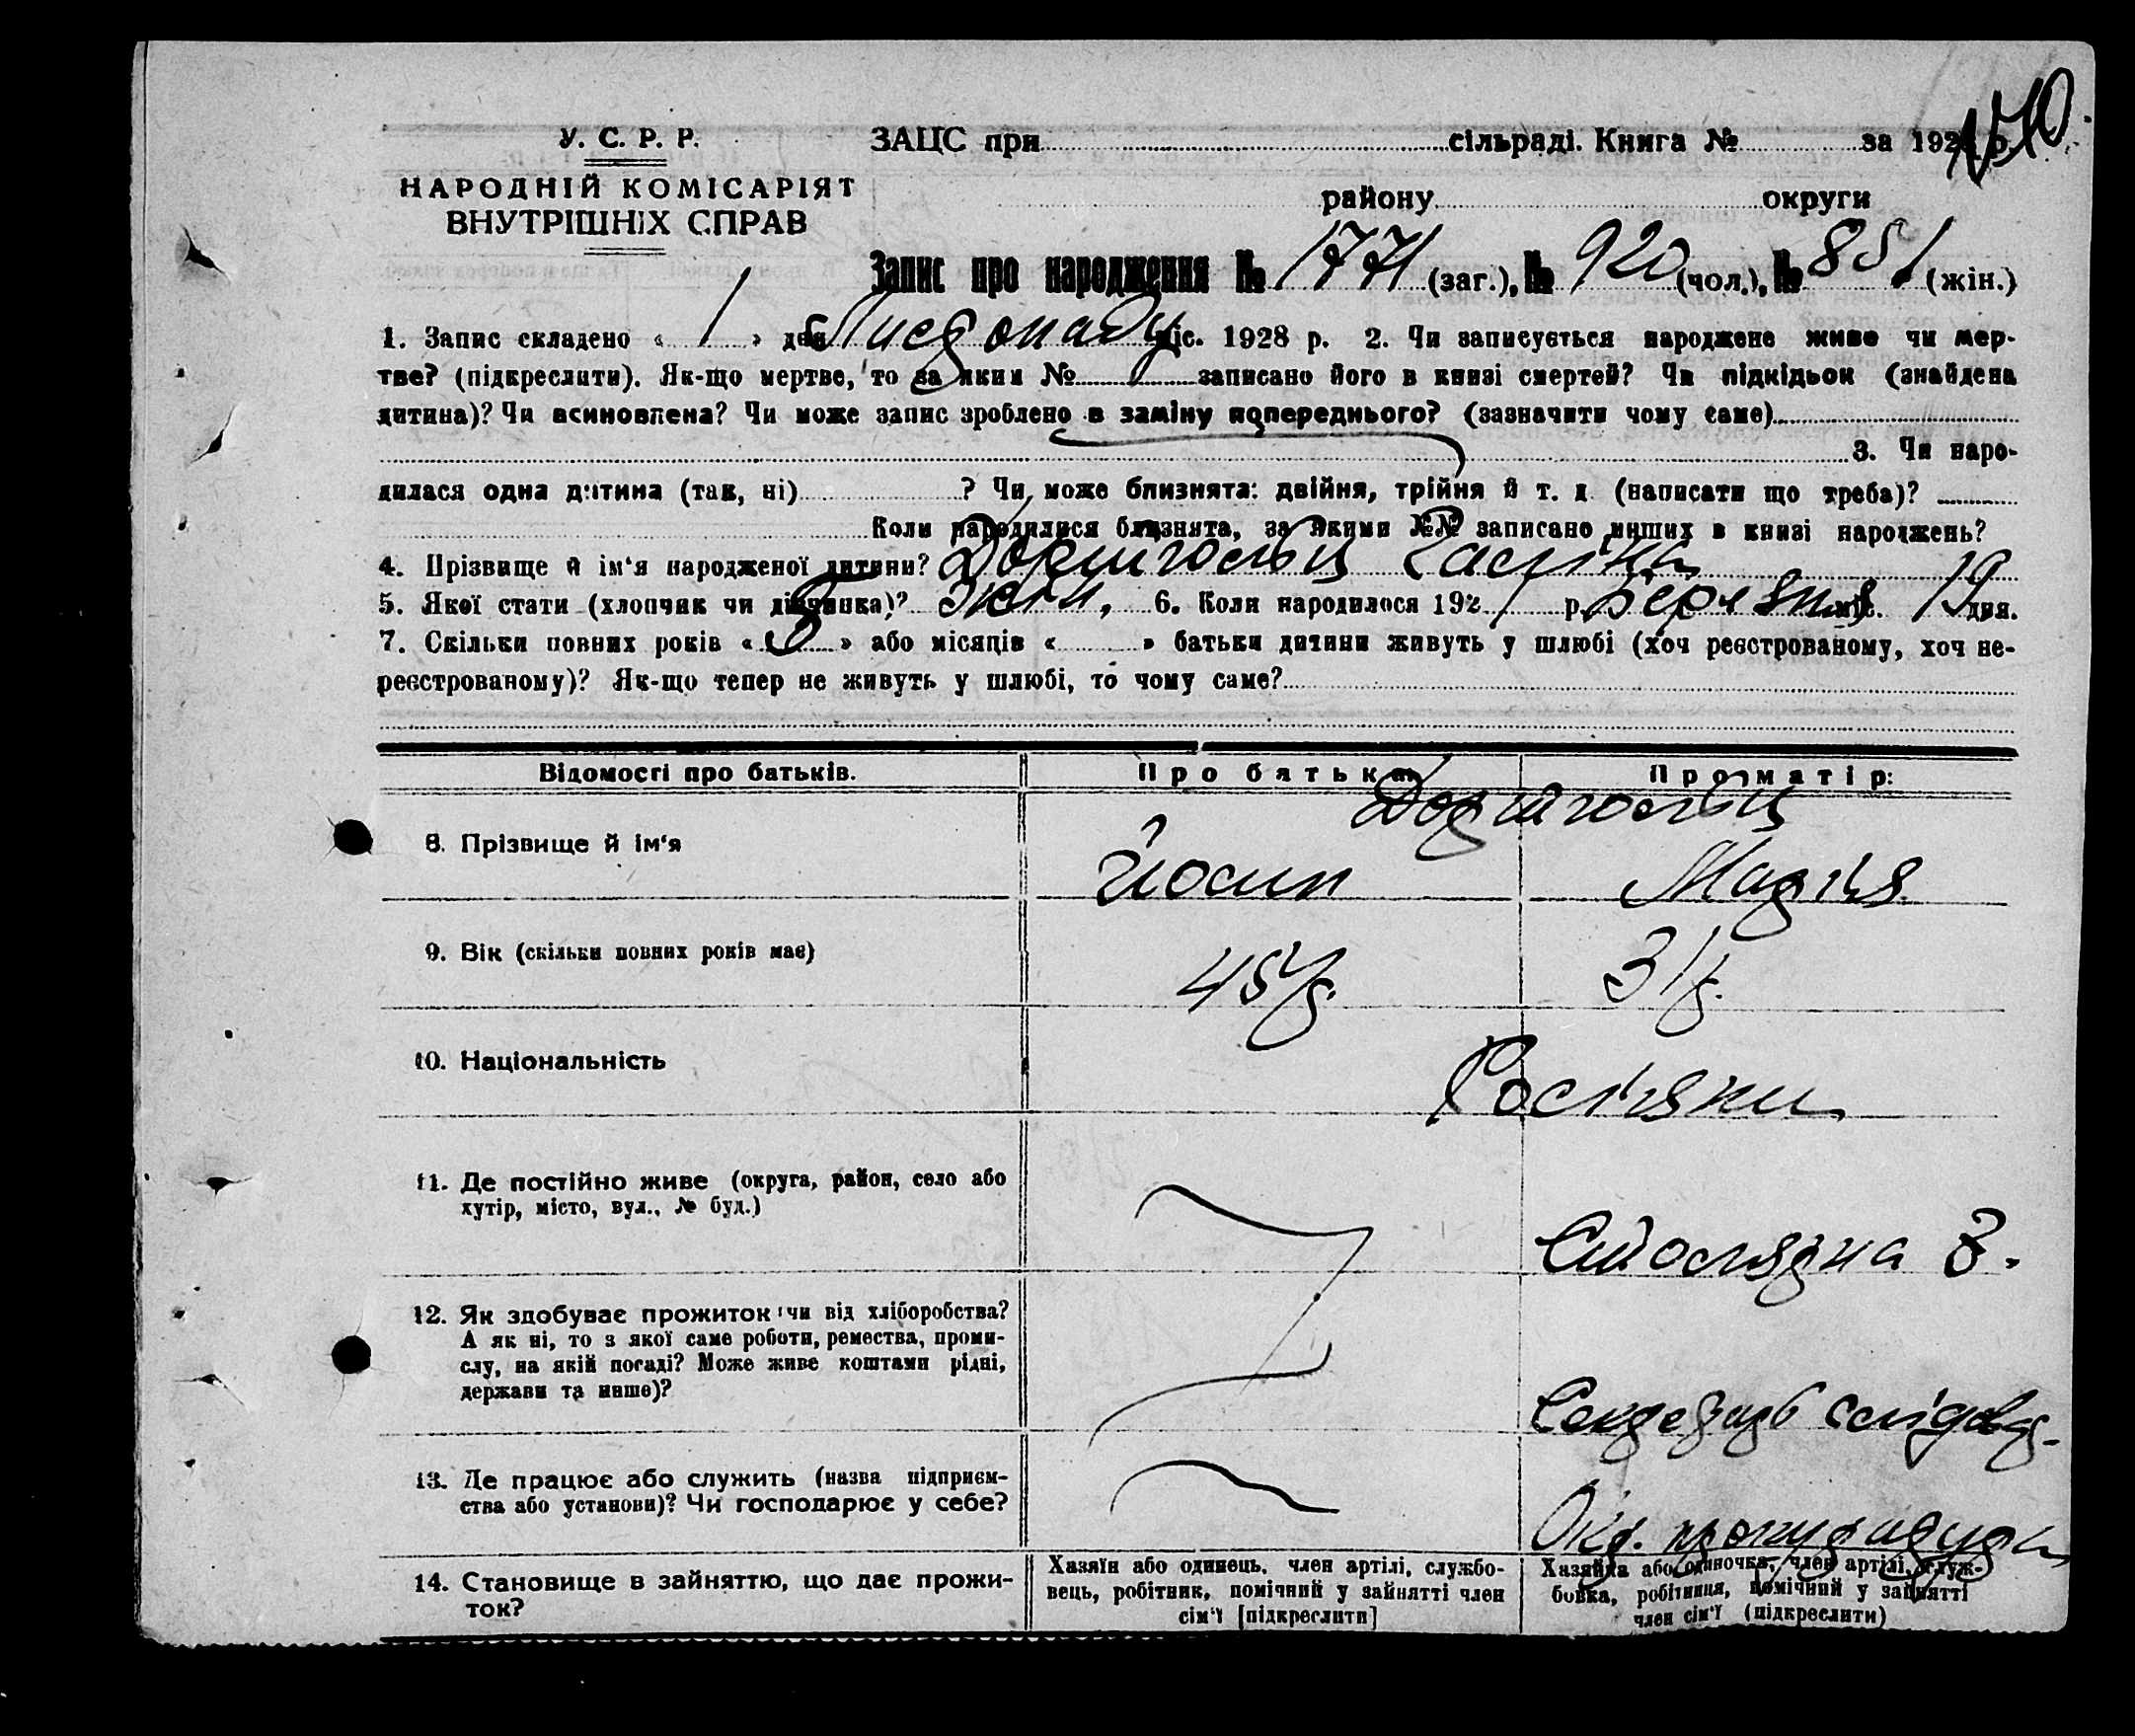 1710.
У. С. Р. Р.
НАРОДНІЙ КОМІСАРІЯТ
ВНУТРІШНІХ СПРАВ
ЗАЦС при сільраді. Книга № за 192 р.
району округи
Запис про народження № 1771 (заг.), № 920 (чол.), № 851 (жін.)
1. Запис складено « 1 » дня Листопаду міс. 1928 р. 2. Чи записується народжене живе чи мер-
тве? (підкреслити). Як-що мертве, то за яким № записано його в книзі смертей? Чи підкідьок (знайдена
дитина)? Чи всиновлена? Чи може запис зроблено в заміну попереднього? (зазначити чому саме)
3. Чи наро-
дилася одна дитина (так, ні) ? Чи може близнята: двійня, трійня й т. д (написати що треба)?
Коли народилися близнята, за якими №№ записано инших в книзі народжень?
4. Прізвище й ім'я народженої дитини?
5. Якої статі (хлопчик чи дівчинка)? жін. 6. Коли народилося 192 р. Березня міс. 19 дня.
7. Скільки повних років « 3 » або місяців « » батьки дитини живуть у шлюбі (хоч реєстрованому, хоч не-
реєстрованому)? Як-що тепер не живуть у шлюбі, то чому саме?
Відомості про батьків. Про батька: Про матір:
8. Прізвище й ім'я
Йосип Марія
9. Вік (скільки повних років має) 45 р. 31 р.
10. Національність Росіяни
11. Де постійно живе (округа, район, село або
хутір, місто, вул., № буд.)
3.
12. Як здобуває прожиток: чи від хліборобства?
А як ні, то з якої саме роботи, ремества, проми-
слу, на якій посаді? Може живе коштами рідні,
держави та инше)?
Секретарь слідчого
13. Де працює або служить (назва підприєм-
ства або установи)? Чи господарює у себе?
Окр. прокуратура
14. Становище в зайняттю, що дає прожи-
ток?
Хазяїн або одинець, член артілі, службо-
вець, робітник, помічний у зайнятті член
сім'ї [підкреслити]
Хазяйка або одиночка, член артілі, служ-
бовка, робітниця, помічний у зайнятті
член сім'ї (підкреслити)